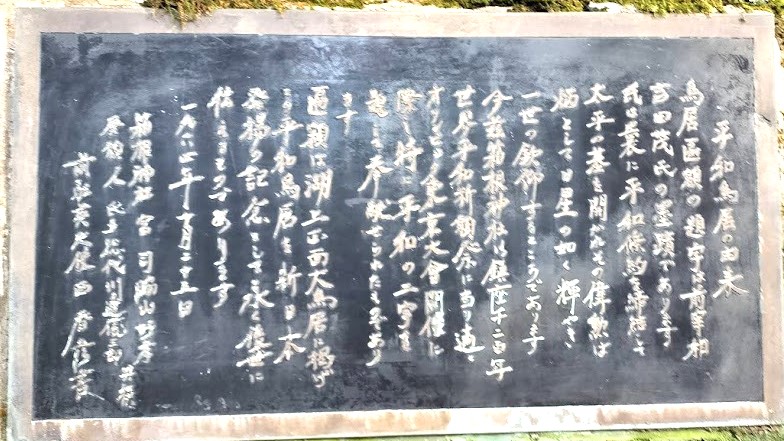 平和鳥居の由来
鳥居匾額の題字は前宰相
吉田茂氏の墨蹟であります
氏は曩に平和條約を締結して
太平の基を開かれその偉勲は
炳として日星の如く輝やき
一世の欽仰するところであります
今茲箱根神社は鎮座千二百年
世界平和祈願祭に当り適々
オリンピック東京大會開催に
際し特に平和の二字を
題して奉献せられたものであり
ます
匾額は湖上正面大鳥居に掲げ
この平和鳥居を新日本
発揚の記念として永く後世に
伝えるものであります
一九六四年十月二十五日
箱根神社宮司
発願人